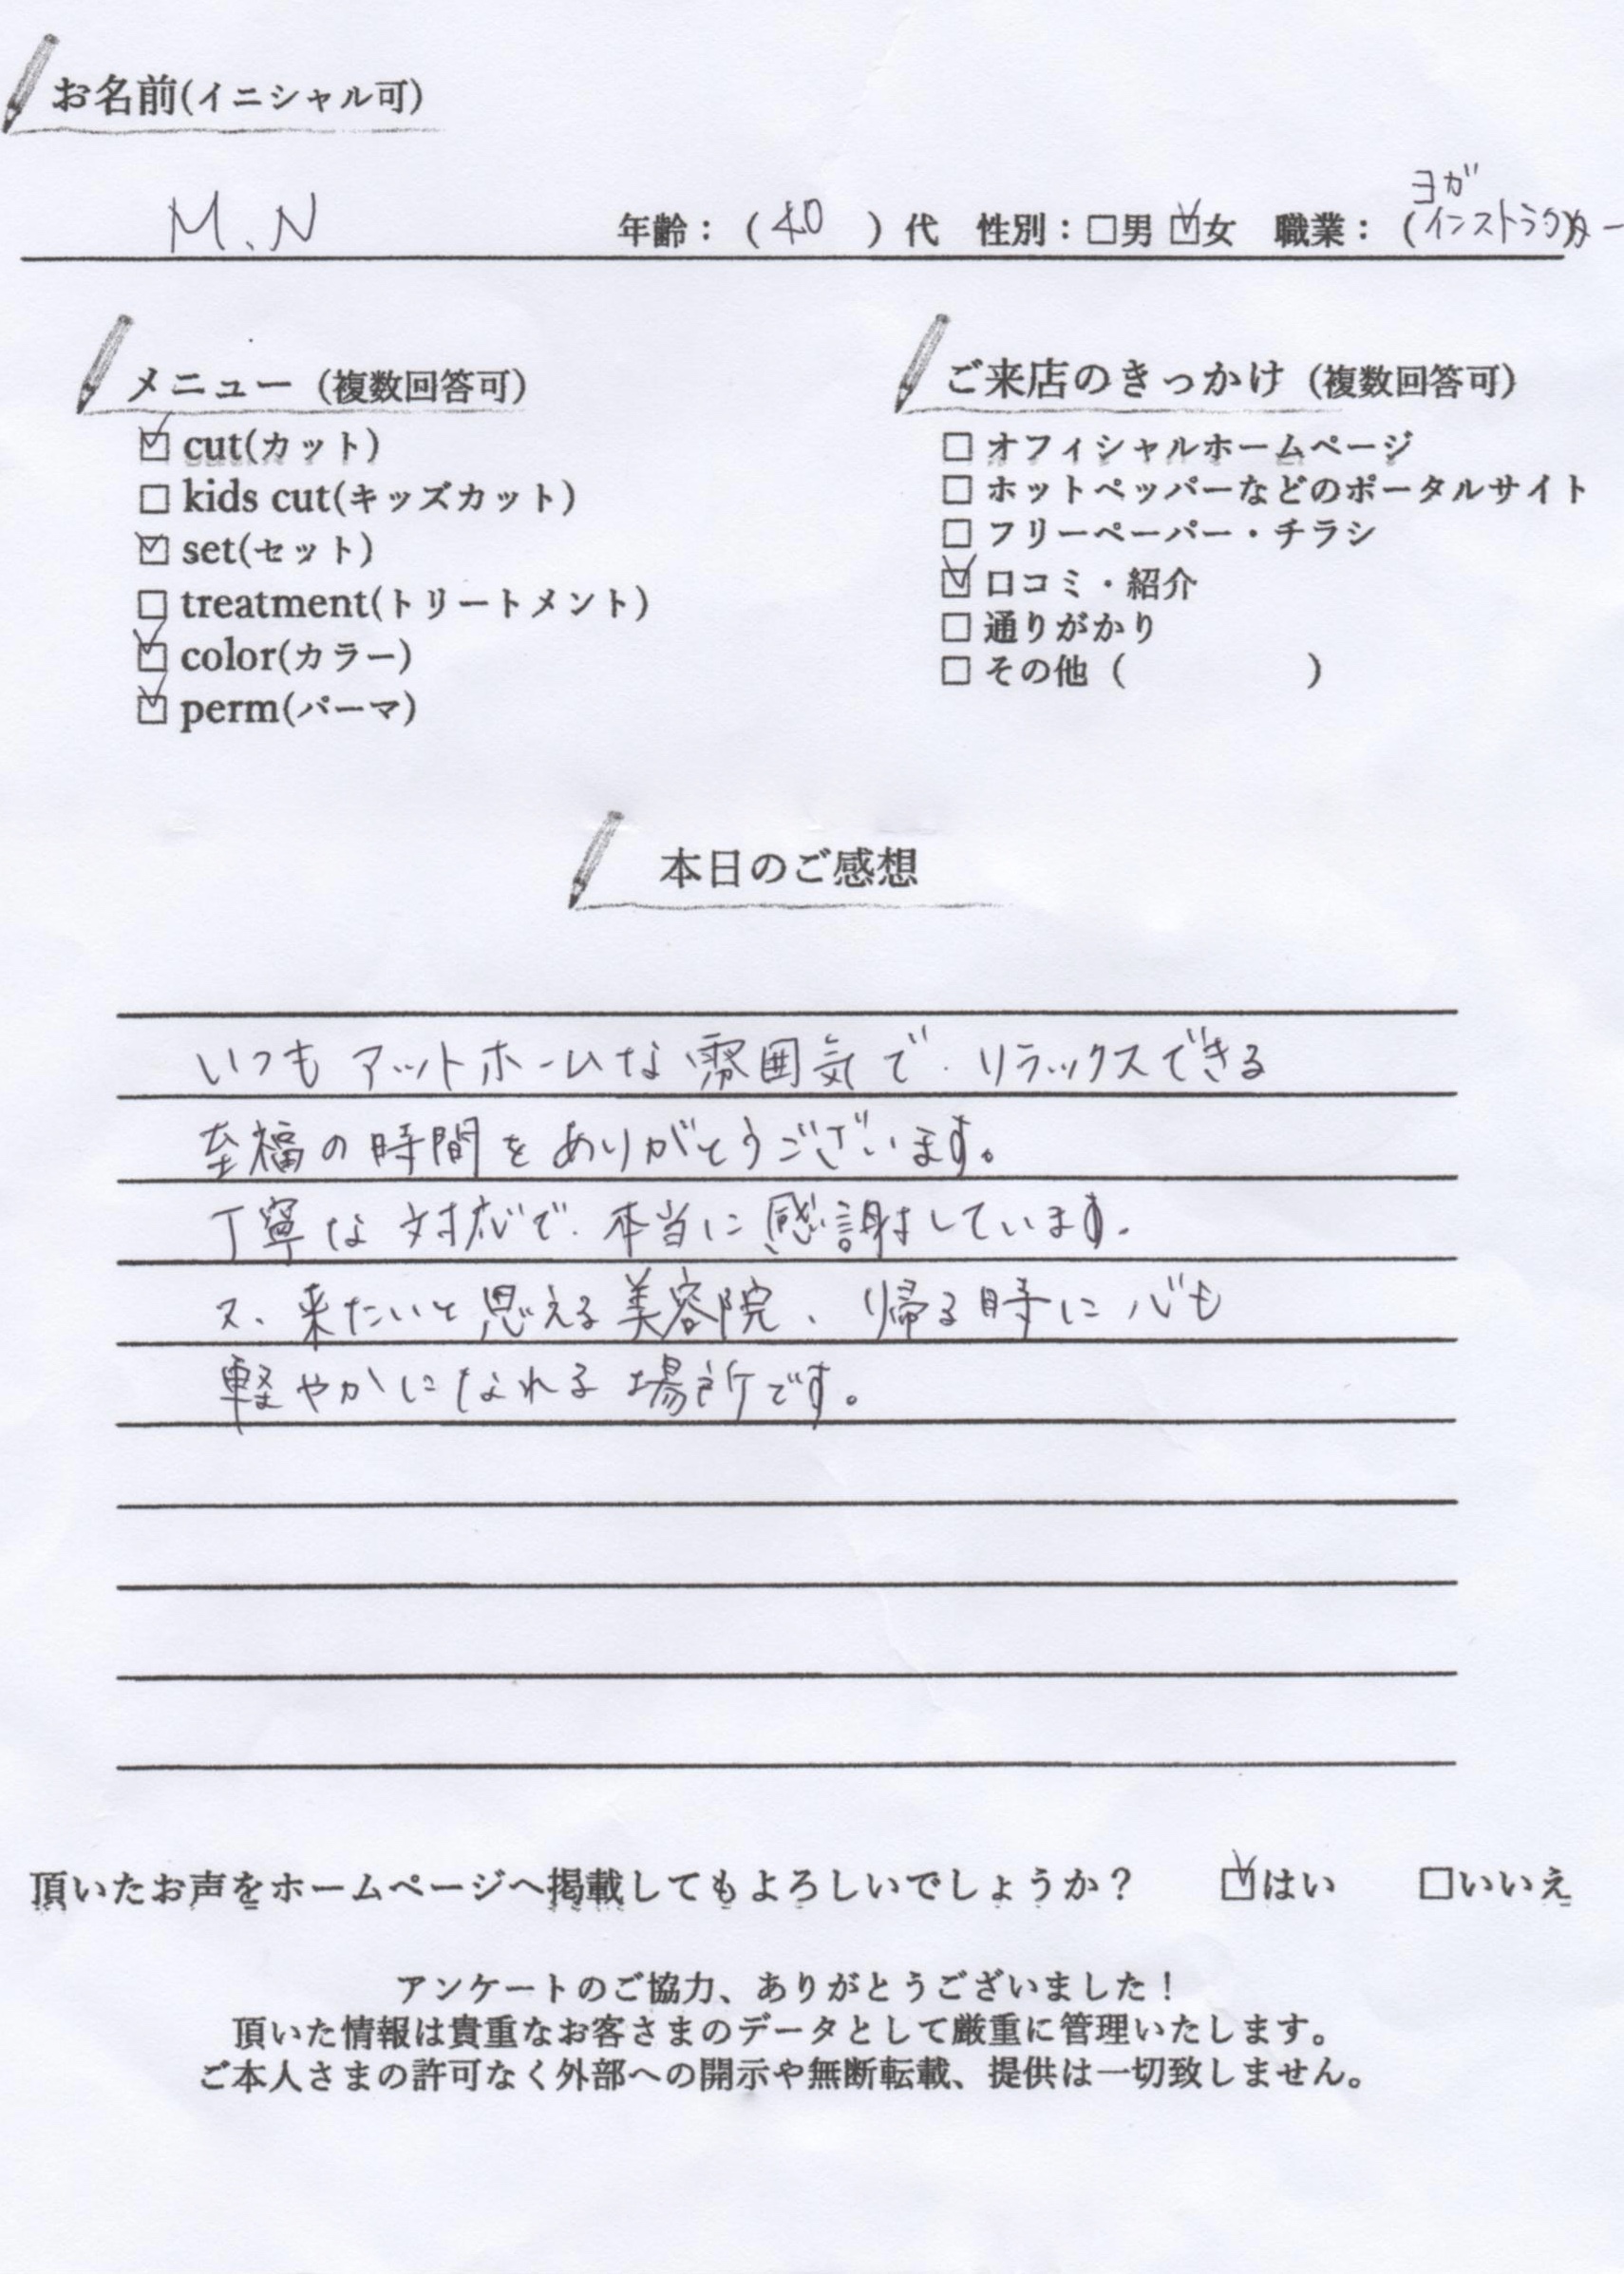 お名前(イニシャル可)
M.N 年齢：（40）代 性別：□男 ☑女 職業：（ヨガインストラクター）
メニュー（複数回答可）
☑ cut(カット)
□ kids cut(キッズカット)
☑ set(セット)
□ treatment(トリートメント)
☑ color(カラー)
☑ perm(パーマ)
ご来店のきっかけ（複数回答可）
□ オフィシャルホームページ
□ ホットペッパーなどのポータルサイト
□ フリーペーパー・チラシ
☑ 口コミ・紹介
□ 通りがかり
□ その他（　　　　　）
本日のご感想
いつもアットホームな雰囲気で、リラックスできる
至福の時間をありがとうございます。
丁寧な対応で、本当に感謝しています。
又、来たいと思える美容院、帰る時に心も
軽やかになれる場所です。
頂いたお声をホームページへ掲載してもよろしいでしょうか？ ☑はい □いいえ
アンケートのご協力、ありがとうございました！
頂いた情報は貴重なお客さまのデータとして厳重に管理いたします。
ご本人さまの許可なく外部への開示や無断転載、提供は一切致しません。